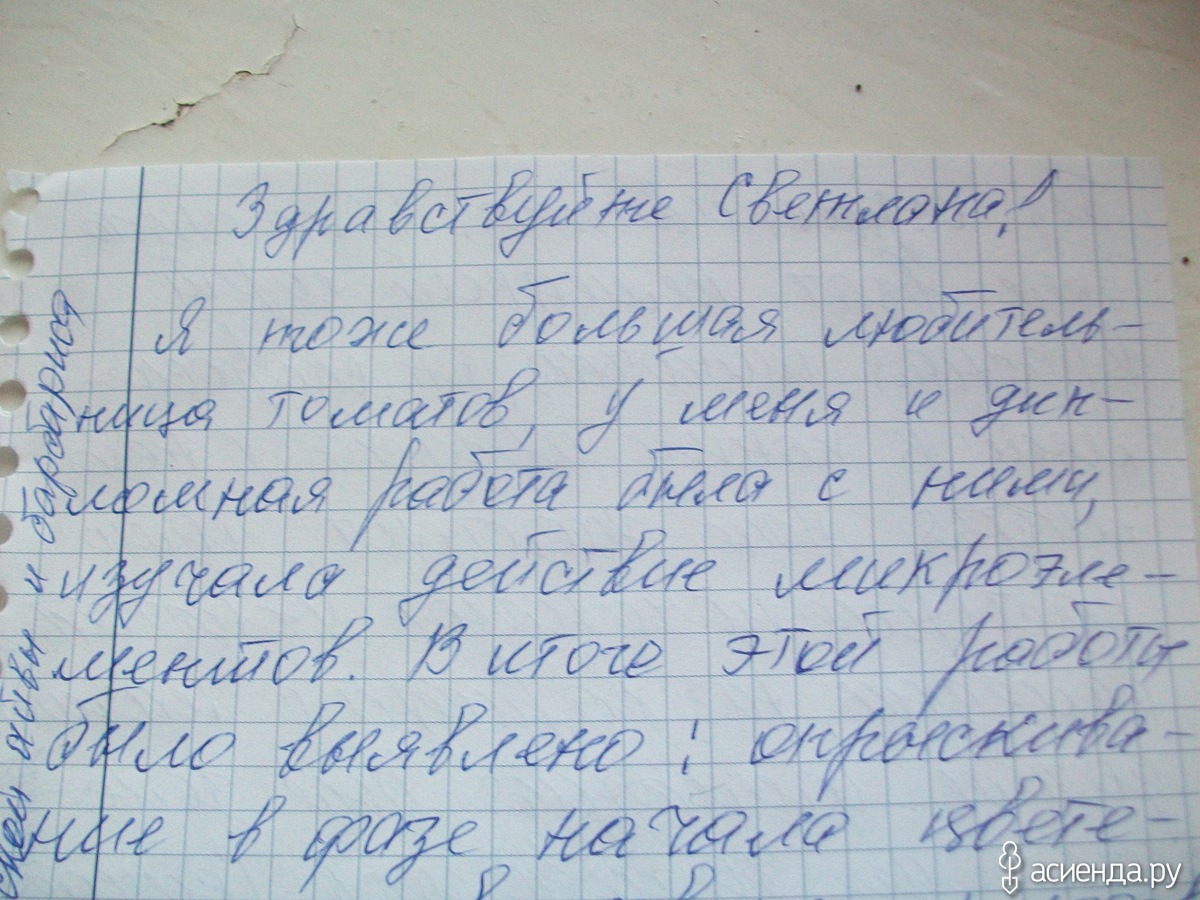 Здравствуйте Светлана!
Я тоже большая любитель-
ница томатов, у меня и дип-
ломная работа была с ними,
изучала действие микроэле-
ментов. В итоге этой работы
было выявлено: опрыскива-
ние в фазе начала цвете-
айвы и барбариса
асиенда.ру